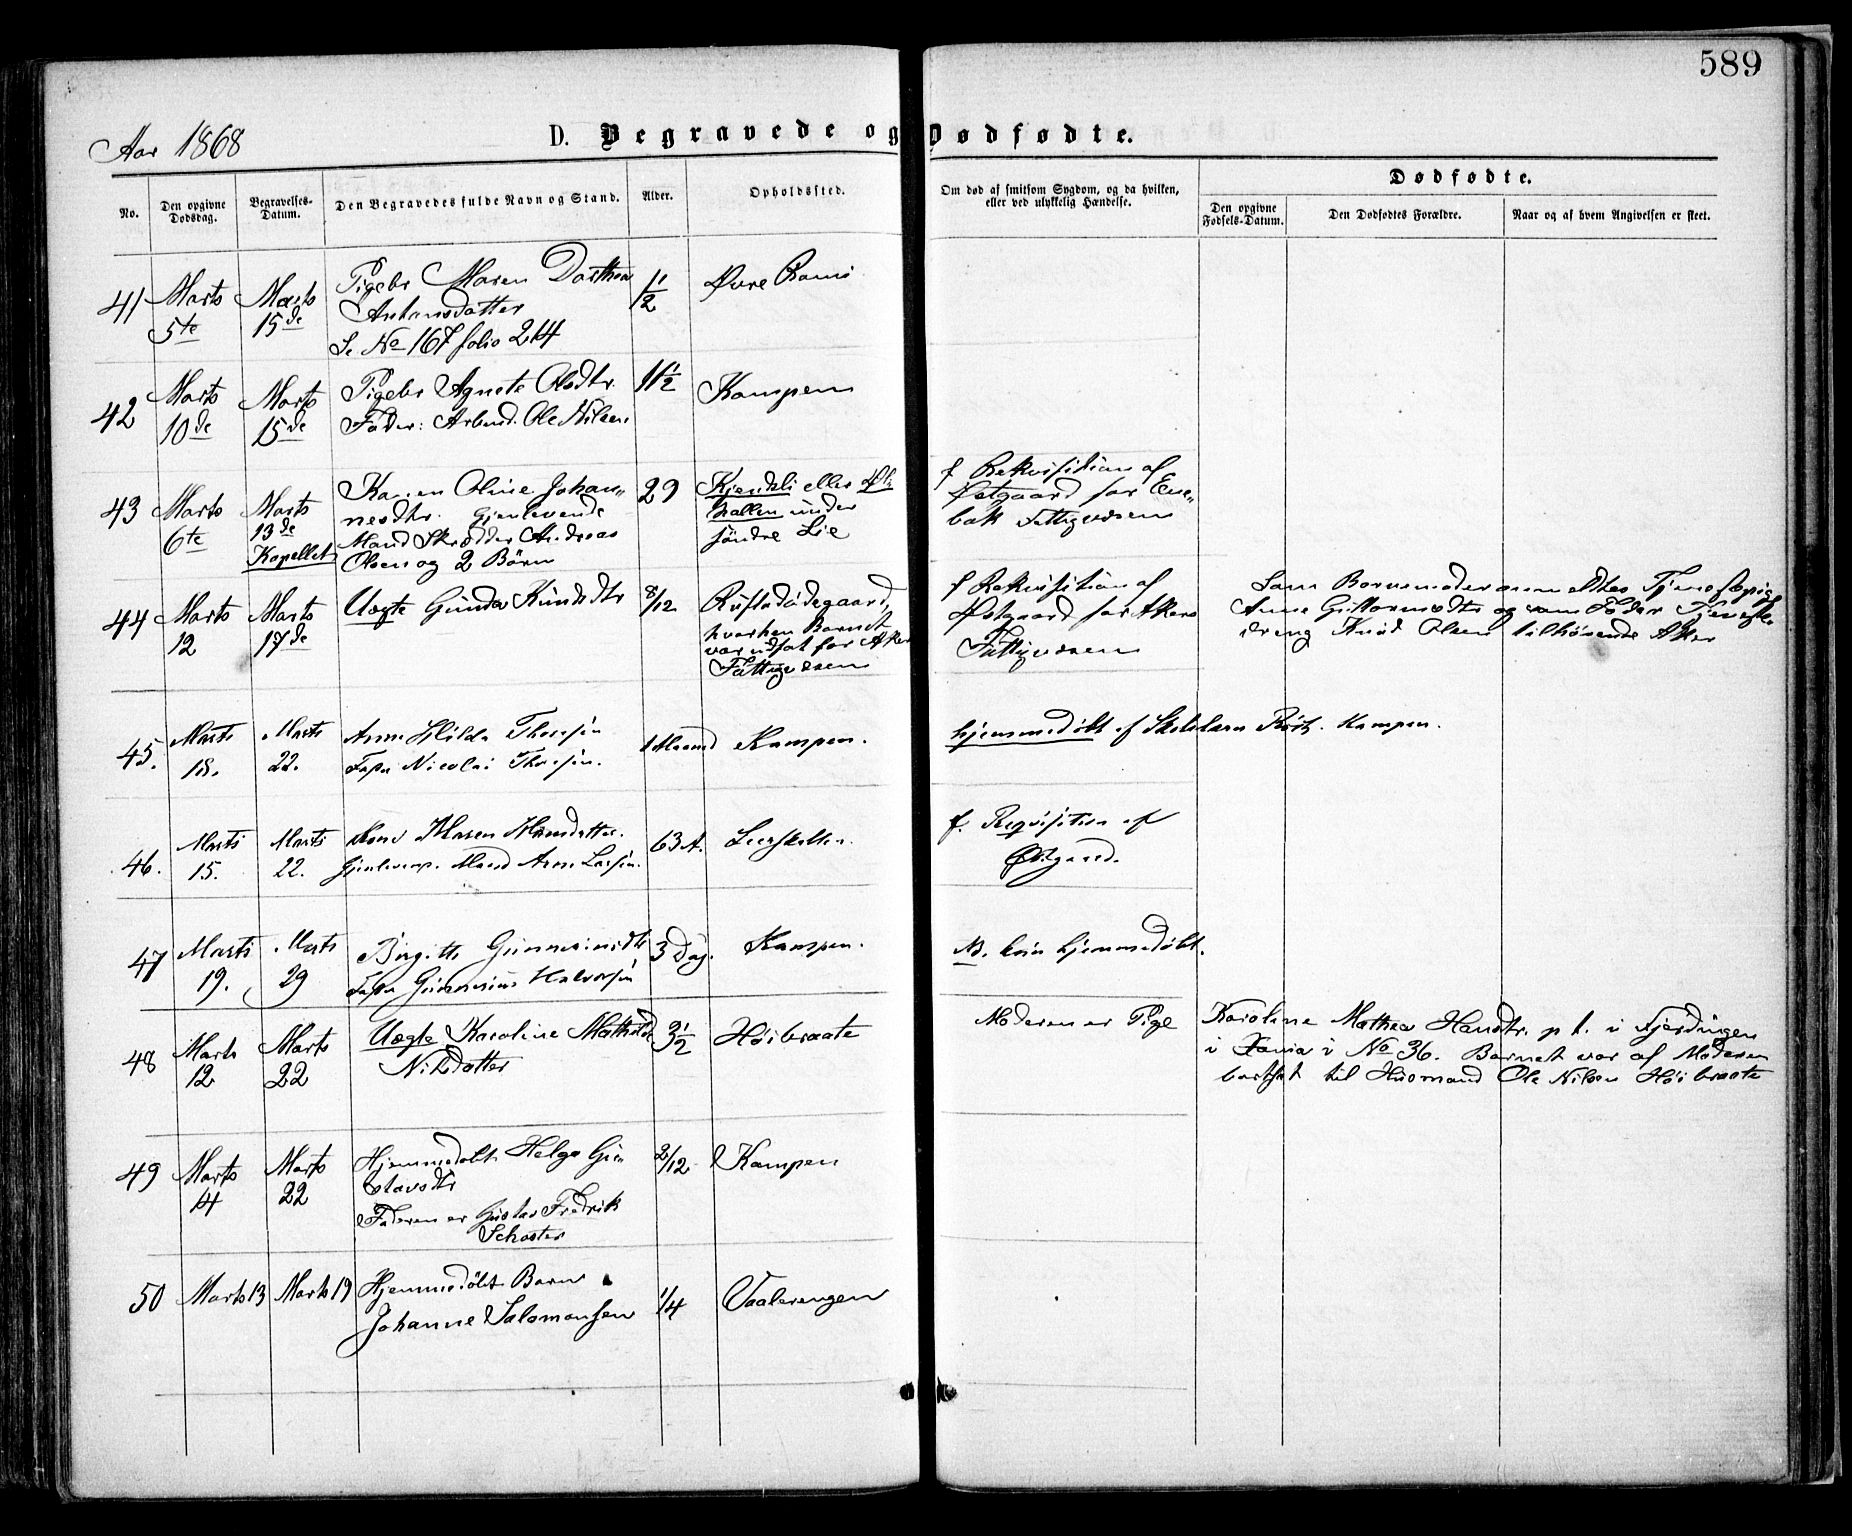 589
Aar 1868
D. Begravede og Dødfødte.
No.
Den opgivne Dødsdag.
Begravelses-Datum.
Den Begravedes fulde Navn og Stand.
Alder.
Opholdssted.
Om død af smitsom Sygdom, og da hvilken, eller ved ulykkelig Hændelse.
Dødfødte.
Den opgivne Fødsels-Datum.
Den Dødfødtes Forældre.
Naar og af hvem Angivelsen er skeet.
41 Marts 5te Marts 15de
Pigebr Maren Dorthea
Antonsdatter
Se No 167 folio 214
1/2
Øvre
42 Marts 10de Marts 15de
Pigebr Agnete Olsdtr.
Fader: Arbmd. Ole Nilsen
11 1/2
Kampen
43 Marts 6te Marts 13de Kapellet
Karen Oline Johan-
nesdtr. Gjenlevende
Mand Skrædder Andreas
Olsen og 2 Børn
29
Kjendsli eller
hallen under
søndre Lie
f Rekvisition af
Østgaard for Ene-
bak Fattigvæsen
44 Marts 12 Marts 17de
Uægte Gunda Knudsdtr
8/12
Rustadødegaard,
hvorhen Barnet
var udsat for Aker
Fattigvæsen
f Rekvisition af
Østgaard for Akers
Fattigvæsen
Som Barnemoder anmeldtes Tjenestepige
Anne Guttormsdtr og som Fader Tjeneste-
dreng Knud Olsen tilhørende Aker
45. Marts 18. Marts 22.
Anne Hilda Thorsen
Nicolai Thorsen.
1 Maaned
Kampen.
hjemmedøbt af Kampen.
46. Marts 15. Marts 22.
Kone Maren Hansdatter.
Gjenlev. Mand Arne Larsen.
63 A.
f. Requisition af
Østgaard.
47 Marts 19. Marts 29
Birgitte Gunneriusdtr
Gunnerius Halvorsen
3 Dag.
Kampen.
NB. kun hjemmedøbt.
48 Marts 12 Marts 22
Uægte Karoline Mathilde
Nilsdatter
3 1/2
Høibraate
Moderen er Pige
Karoline Mathea Hansdtr. p t. i Fjerdingen
i Xania i No 36. Barnet var af Moderen
bortsat til Husmand Ole Nilsen Høibraate
49 Marts 4 Marts 22
Hjemmedøbt Helga Gu-
stavsdtr
Faderen er Gustav Fredrik
Schoster
2/12
Kampen
50 Marts 13 Marts 19
Hjemmedøbt Barn
Johanne Salomonsen
1/4
Vaalerengen